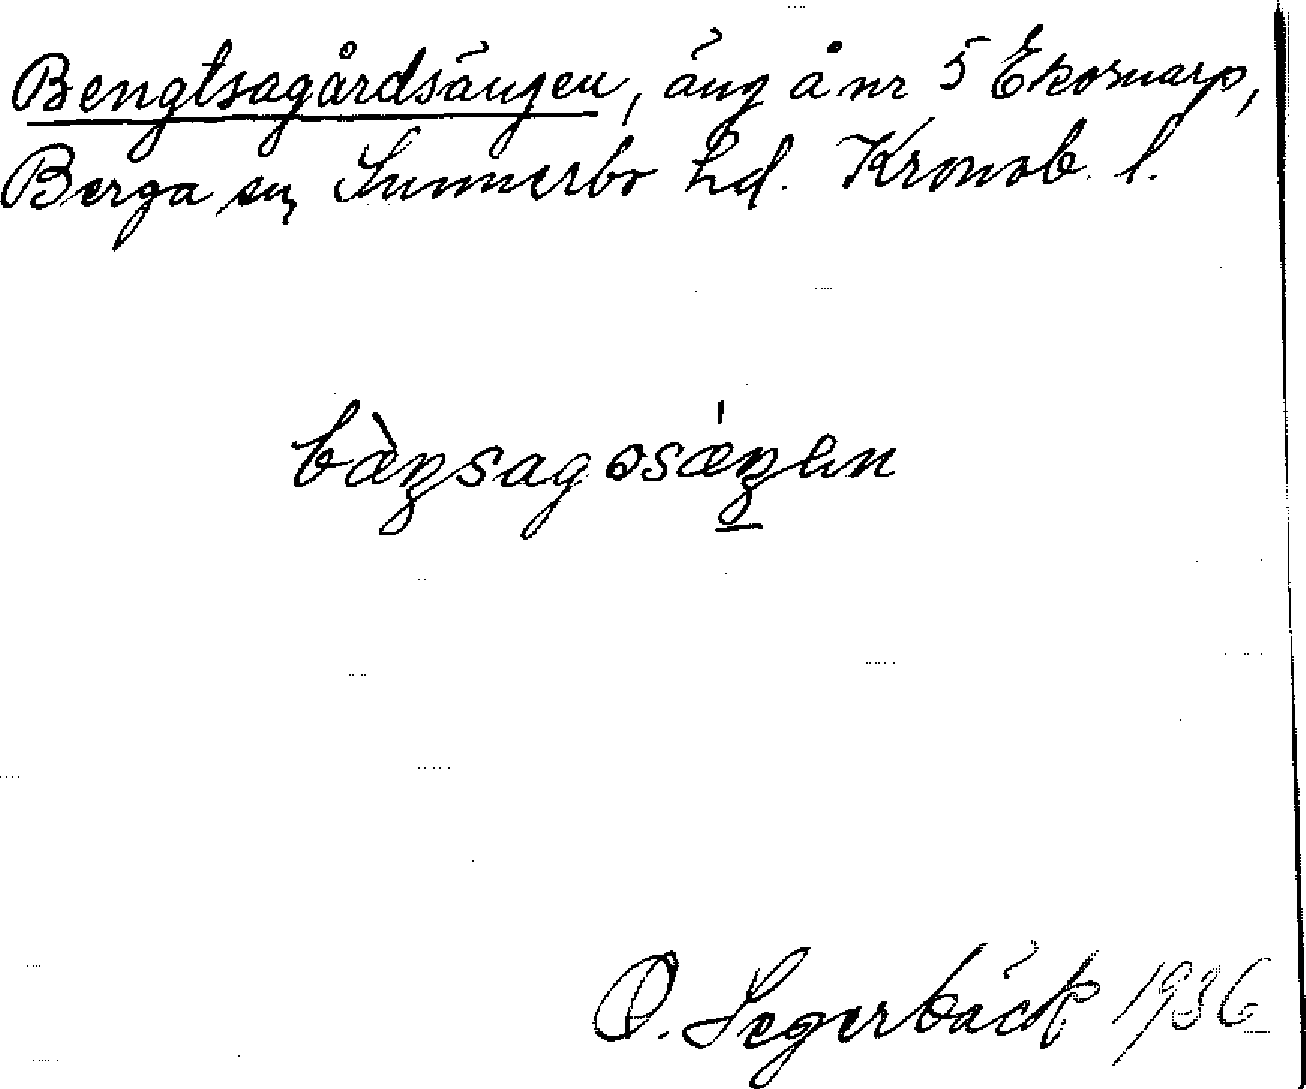 Bengtsagårdsängen, äng å nr 5 Ekornarp,
Berga sn, Sunnerbo hd. Kronob. l.
bæ̀ŋsagɔsæ̍ŋ̲ən
O. Segerbäck 1936